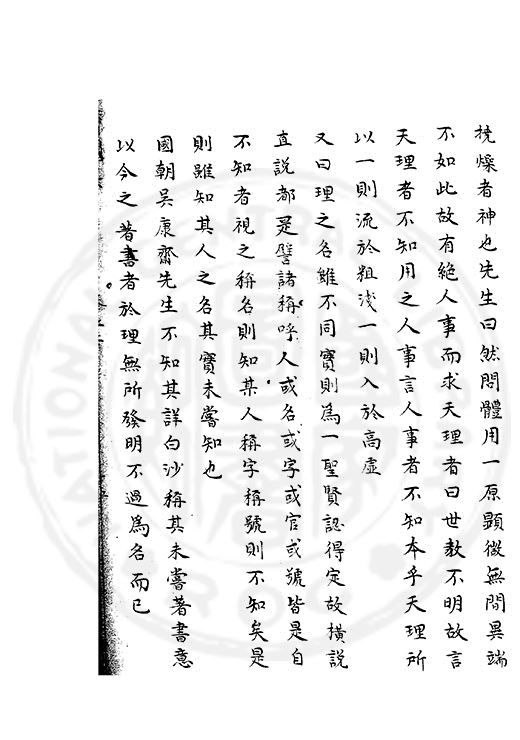 撓燥者神也先生曰然問體用一原顯微無間異端
不如此故有絶人事而求天理者曰世教不明故言
天理者不知用之人事言人事者不知本乎天理所
以一則流於粗淺一則入於高虛
又曰理之名雖不同實則為一聖賢認得定故橫說
直說都是譬諸稱呼人或名或字或官或號皆是自
不知者視之稱名則知某人稱字稱號則不知矣是
則雖知其人之名其實未嘗知也
國朝吳康齋先生不知其詳白沙稱其未嘗著書意
以今之著書者於理無所發明不過為名而已